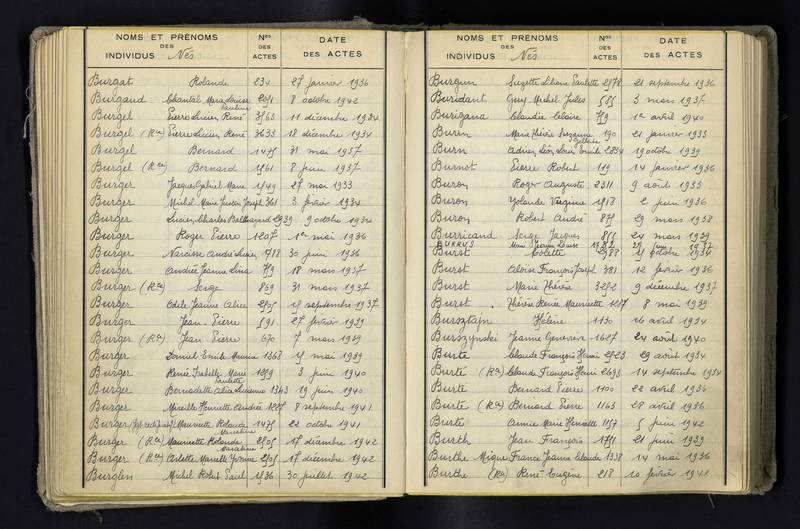 NOMS ET PRÉNOMS DES INDIVIDUS Nés Nos DES ACTES DATE DES ACTES
Burgat Rolande 234 27 janvier 1936
Burgaud Chantal Marie Louise Pauline 8 octobre 1942
Burgel Pierre Lucien René 3563 11 décembre 1934
Burgel (Ron) Pierre Lucien René 3633 18 décembre 1934
Burgel Bernard 1475 31 mai 1937
Burgel Bernard 1561 8 juin 1937
Burger Jacques Gabriel Marie 1549 27 mai 1933
Burger Michel Marie Justin Joseph 361 3 février 1934
Burger Lucien Charles Balthazard 2939 9 octobre 1934
Burger Roger Pierre 1207 1er mai 1936
Burger Narcisse André Lucien 1788 30 juin 1936
Burger Andrée Jeanne Lina 18 mars 1937
Burger Serge 869 31 mars 1937
Burger Odile Jeanne Alice 15 septembre 1937
Burger Jean Pierre 591 27 février 1939
Burger Jean Pierre 670 7 mars 1939
Burger Daniel Emile Maurice 1368 15 mai 1939
Burger Renée Isabelle Marie Paulette 1259 3 juin 1940
Burger Bernadette Alice Lucienne 1343 19 juin 1940
Burger Mireille Henriette Andrée 1227 8 septembre 1941
Burger Mauricette Rolande Marceline 1475 22 octobre 1941
Burger Mauricette Rolande Marceline 2505 17 décembre 1942
Burger Arlette Marcelle Yvonne 2505 17 décembre 1942
Burglen Michel Robert Paul 1536 30 juillet 1942
NOMS ET PRÉNOMS DES INDIVIDUS Nés Nos DES ACTES DATE DES ACTES
Burgun Suzette Liliane Paulette 2578 21 septembre 1936
Buridant Guy Michel Jules 585 3 mars 1937
Burigana Claudie Claire 1er avril 1940
Burin Marie Thérèse Suzanne 190 21 janvier 1933
Burn Adrien Léon Louis Emile 2834 19 octobre 1939
Burnot Pierre Robert 119 14 janvier 1936
Buron Roger Auguste 2311 9 août 1933
Buron Yolande Virginie 1518 2 juin 1936
Buron Robert André 29 mars 1938
Burricand Serge Jacques 855 24 mars 1939
BURRUS
Burst Colette 2988 15 octobre 1934
Burst Aloïse François Joseph 381 12 février 1936
Burst Marie Thérèse 3282 9 décembre 1937
Burst Thérèse Renée Mauricette 1287 8 mai 1939
Bursztajn Hélène 1130 16 avril 1934
Burszynski Jeanne Geneviève 1687 24 août 1940
Burte Claude François Henri 2523 29 août 1934
Burté Claude François Henri 2693 14 septembre 1934
Burté Bernard Pierre 1100 22 avril 1936
Burté Bernard Pierre 1163 28 avril 1936
Burte Annie Marie Henriette 1157 5 juin 1942
Burth Jean François 1751 21 juin 1939
Burthe Mique France Jeanne Claude 1338 14 mai 1936
Burthe René Eugène 218 10 février 1941